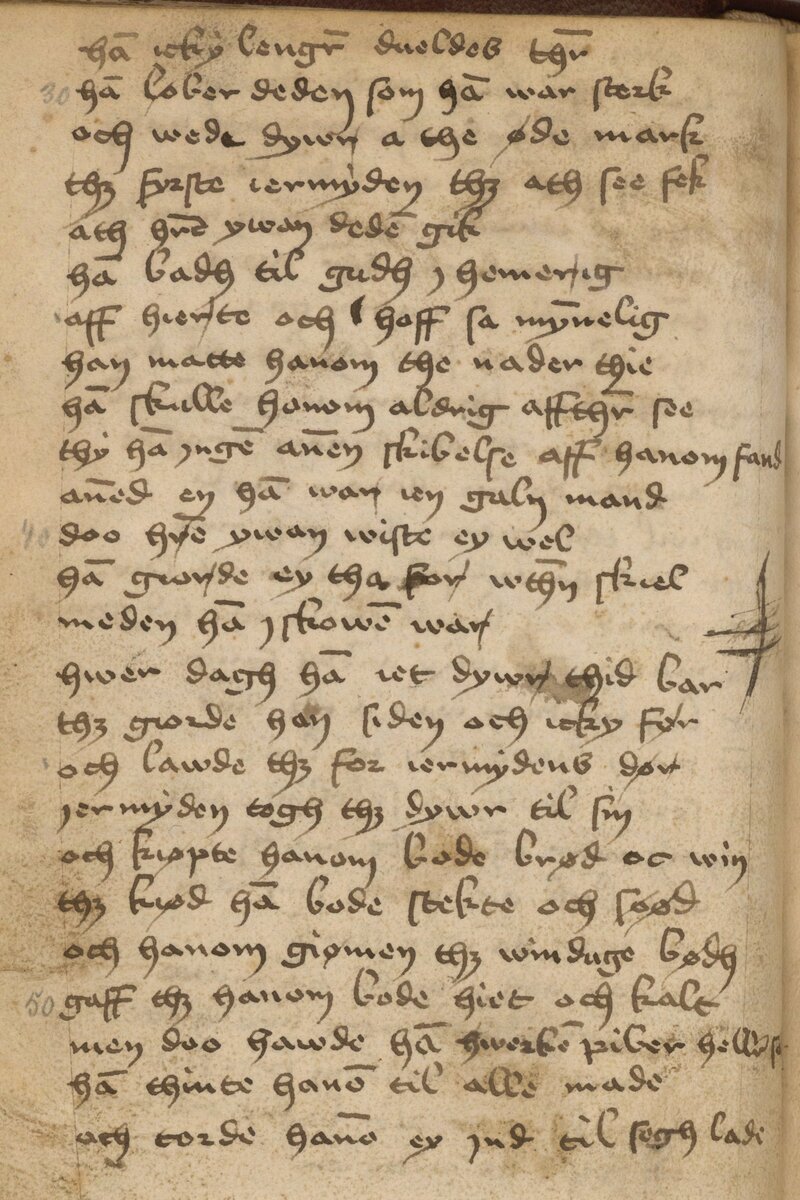 hā icky lengr̄ dueldes thr̄
30 hā løber deden som hā war sterk
och wede dywr a the øde mark
thꝫ fyrste iermyden thꝫ ath see fek
ath hr̄e ywan dedē gik
hā badh til gudh j hemerig
aff hierte och hoff sa myn̄elig
han matte hanom the nader thie
hā skulle honom aldrig affthr̄ see
thy hā jngē an̄en skibelse aff hanom fand
an̄ed en hā war ien galn mand
40 doo hr̄e ywan wiste ey wel
hā giorde ey tha for wthn̄ skiel
meden hā j skowē war
hwer dagh hā iet dywr thid bar
thꝫ giorde han siden och icky før
och lawde thꝫ for iermydens dør
jermyden togh thꝫ dywr til sin
och kiøpte hanom bode brød oc win
thꝫ kiød hā bode stekte och søød
och hanom giømen thꝫ windage bødh
50 gaff thꝫ hanom bode hiet och kalt
men doo hawde hā hwerkē piber hellr̄
hā thinte hanō til alle made
och torde hanō ey jnd til segh lade